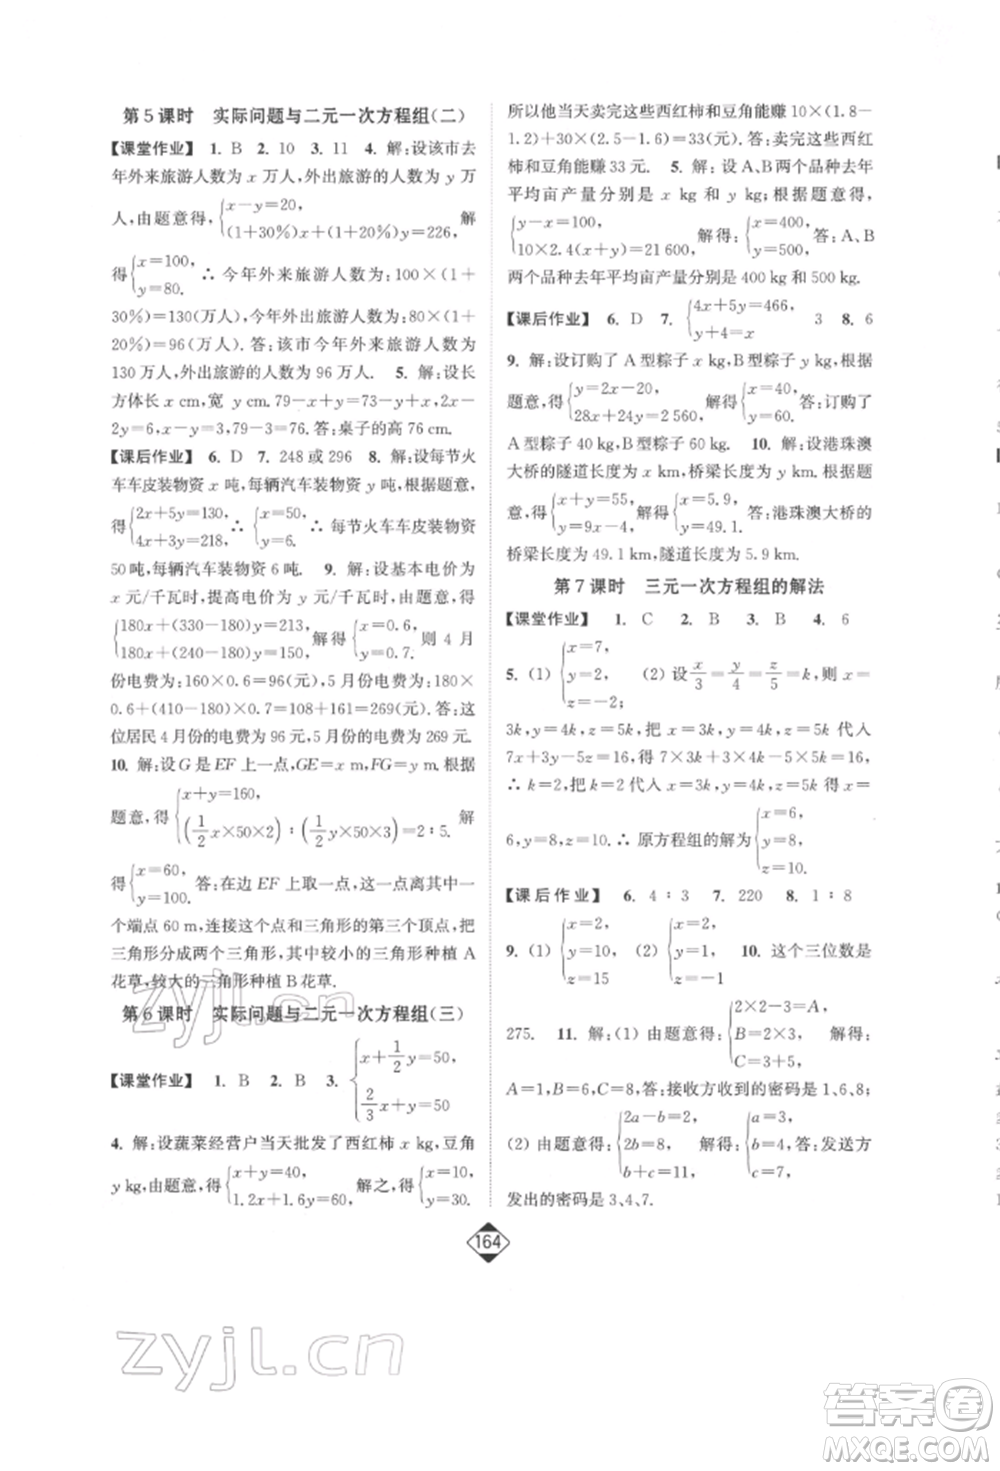 第5课时 实际问题与二元一次方程组(二)
【课堂作业】 1. B 2. 10 3. 11 4. 解:设该市去
年外来旅游人数为 x 万人,外出旅游人数为 y 万
人,由题意得,{x−y=20, (1+30%)x+(1+20%)y=226, 解
得{x=100, y=80. ∴ 今年外来旅游人数为:100×(1+
30%)=130(万人),今年外出旅游人数为:80×(1+
20%)=96(万人).答:该市今年外来旅游人数为
130万人,外出旅游的人数为 96 万人. 5. 解:设长
方体长 x cm,宽 y cm.79−x+y=73−y+x,2x−
2y=6,x−y=3,79−3=76.答:桌子的高76 cm.
【课后作业】 6. D 7. 248 或 296 8. 解:设每节火
车车皮装物资 x 吨,每辆汽车装物资 y 吨,根据题意,
得{2x+5y=130, 4x+3y=218, ∴ {x=50, y=6. ∴ 每节火车车皮装物资
50吨,每辆汽车装物资 6 吨. 9. 解:设基本电价为
x 元/千瓦时,提高电价为 y 元/千瓦时,由题意,得
{180x+(330−180)y=213, 180x+(240−180)y=150, 解得{x=0.6, y=0.7. 则 4 月
份电费为:160×0.6=96(元),5 月份电费为:180×
0.6+(410−180)×0.7=108+161=269(元).答:这
位居民 4 月份的电费为 96 元,5 月份的电费为 269 元.
10. 解:设 G 是 EF 上一点,GE=x m,FG=y m,根据
题意,得{x+y=160, (1/2 x×50×2)∶(1/2 y×50×3)=2∶5. 解
得{x=60, y=100. 答:在边 EF 上取一点,这一点离一个
端点 60 m,连接这个点和三角形的第三个顶点,把
三角形分成两个三角形,其中较小的三角形种植 A
花草,较大的三角形种植 B 花草.
第6课时 实际问题与二元一次方程组(三)
【课堂作业】 1. B 2. B 3. {x+1/2 y=50, 2/3 x+y=50
4. 解:设蔬菜经营户当天批发了西红柿 x kg,豆角
y kg,由题意,得{x+y=40, 1.2x+1.6y=60, 解之,得{x=10, y=30.
所以他当天卖完这些西红柿和豆角能赚 10×(1.8−
1.2)+30×(2.5−1.6)=33(元).答:卖完这些西红
柿和豆角能赚 33 元. 5. 解:设 A、B 两个品种去年
平均亩产量分别是 x kg 和 y kg;根据题意,得
{y−x=100, 10×2.4(x+y)=21 600, 解得:{x=400, y=500, 答:A、B
两个品种去年平均亩产量分别是 400 kg 和 500 kg.
【课后作业】 6. D 7. {4x+5y=466, y+4=x 3 8. 6
9. 解:设订购了 A 型粽子 x kg,B 型粽子 y kg,根据
题意,得{y=2x−20, 28x+24y=2 560, 解得{x=40, y=60. 答:订购了
A 型粽子 40 kg,B 型粽子 60 kg. 10. 解:设港珠澳
大桥的隧道长度为 x km,桥梁长度为 y km.由题意,
得{x+y=55, y=9x−4, 解得:{x=5.9, y=49.1. 答:港珠澳大桥的
桥梁长度为 49.1 km,隧道长度为 5.9 km.
第7课时 三元一次方程组的解法
【课堂作业】 1. C 2. B 3. B 4. 6
5. (1) {x=7, y=2, z=−2; (2) 设 x/3=y/4=z/5=k,则 x=
3k,y=4k,z=5k,把 x=3k,y=4k,z=5k 代入
7x+3y−5z=16,得 7×3k+3×4k−5×5k=16,
∴ k=2,把 k=2 代入 x=3k,y=4k,z=5k 得 x=
6,y=8,z=10.∴ 原方程组的解为{x=6, y=8, z=10.
【课后作业】 6. 4∶3 7. 220 8. 1∶8
9. (1) {x=2, y=10, z=15 (2) {x=2, y=1, z=−1 10. 这个三位数是
275. 11. 解:(1) 由题意得:{2×2−3=A, B=2×3, C=3+5, 解得:
A=1,B=6,C=8,答:接收方收到的密码是 1、6、8;
(2) 由题意得:{2a−b=2, 2b=8, b+c=11, 解得:{a=3, b=4, c=7. 答:发送方
发出的密码是 3、4、7.
164
zyjl.cn
zyjl.cn
答案圈
MXQE.COM